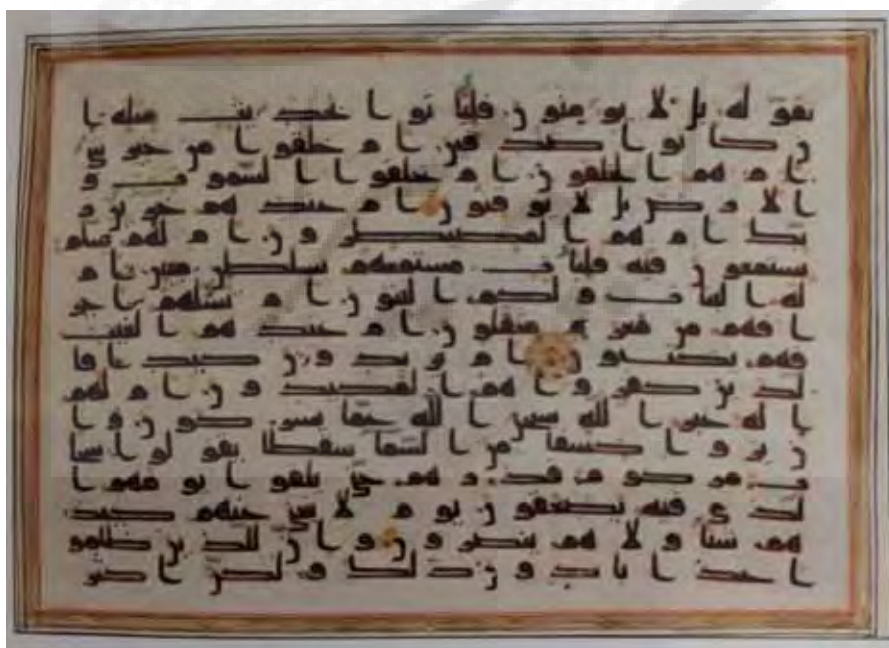 يقوله بل لا يومنون فلياتوا بحديث مثله ا
ن كانوا صدقين ام خلقوا من غير شي
ام هم الخلقون ام خلقوا السموت و
الارض بل لا يوقنون ام عندهم خزين ر
بك ام هم المصيطرون ام لهم سلم
يستمعون فيه فليات مستمعهم بسلطن مبين ام
له البنات ولكم البنون ام تسلهم اجر
ا فهم من مغرم مثقلون ام عندهم الغيب
فهم يكتبون ام يريدون كيدا فا
لذين كفروا هم المكيدون ام لهم
اله غير الله سبحن الله عما يشركون وا
ن يروا كسفا من السما سقطا يقولوا سحا
ب مركوم فذرهم حتى يلقوا يومهم ا
لذي فيه يصعقون يوم لا يغني عنهم كيد
هم شيا ولا هم ينصرون وان للذين ظلمو
ا عذابا دون ذلك ولكن اكثر